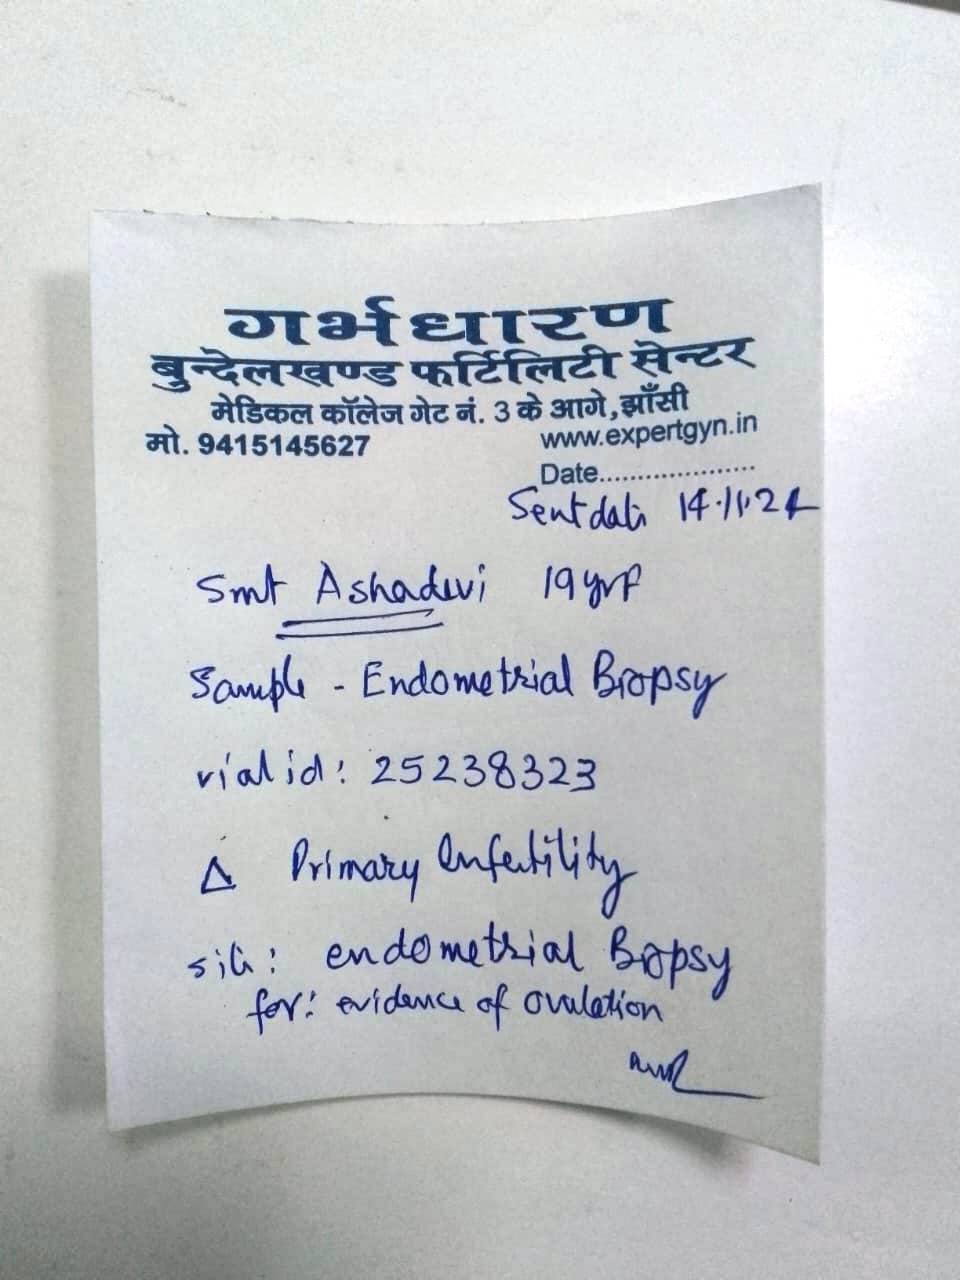 गर्भधारण
बुन्देलखण्ड फर्टिलिटी सेन्टर
मेडिकल कॉलेज गेट नं. 3 के आगे, झाँसी
मो. 9415145627
www.expertgyn.in
Date....................
Sent date 14.11.24
Smt Ashadevi 19yrF
Sample - Endometrial Biopsy
vial id: 25238323
Δ Primary Infertility
site: endometrial Biopsy
for: evidence of ovulation